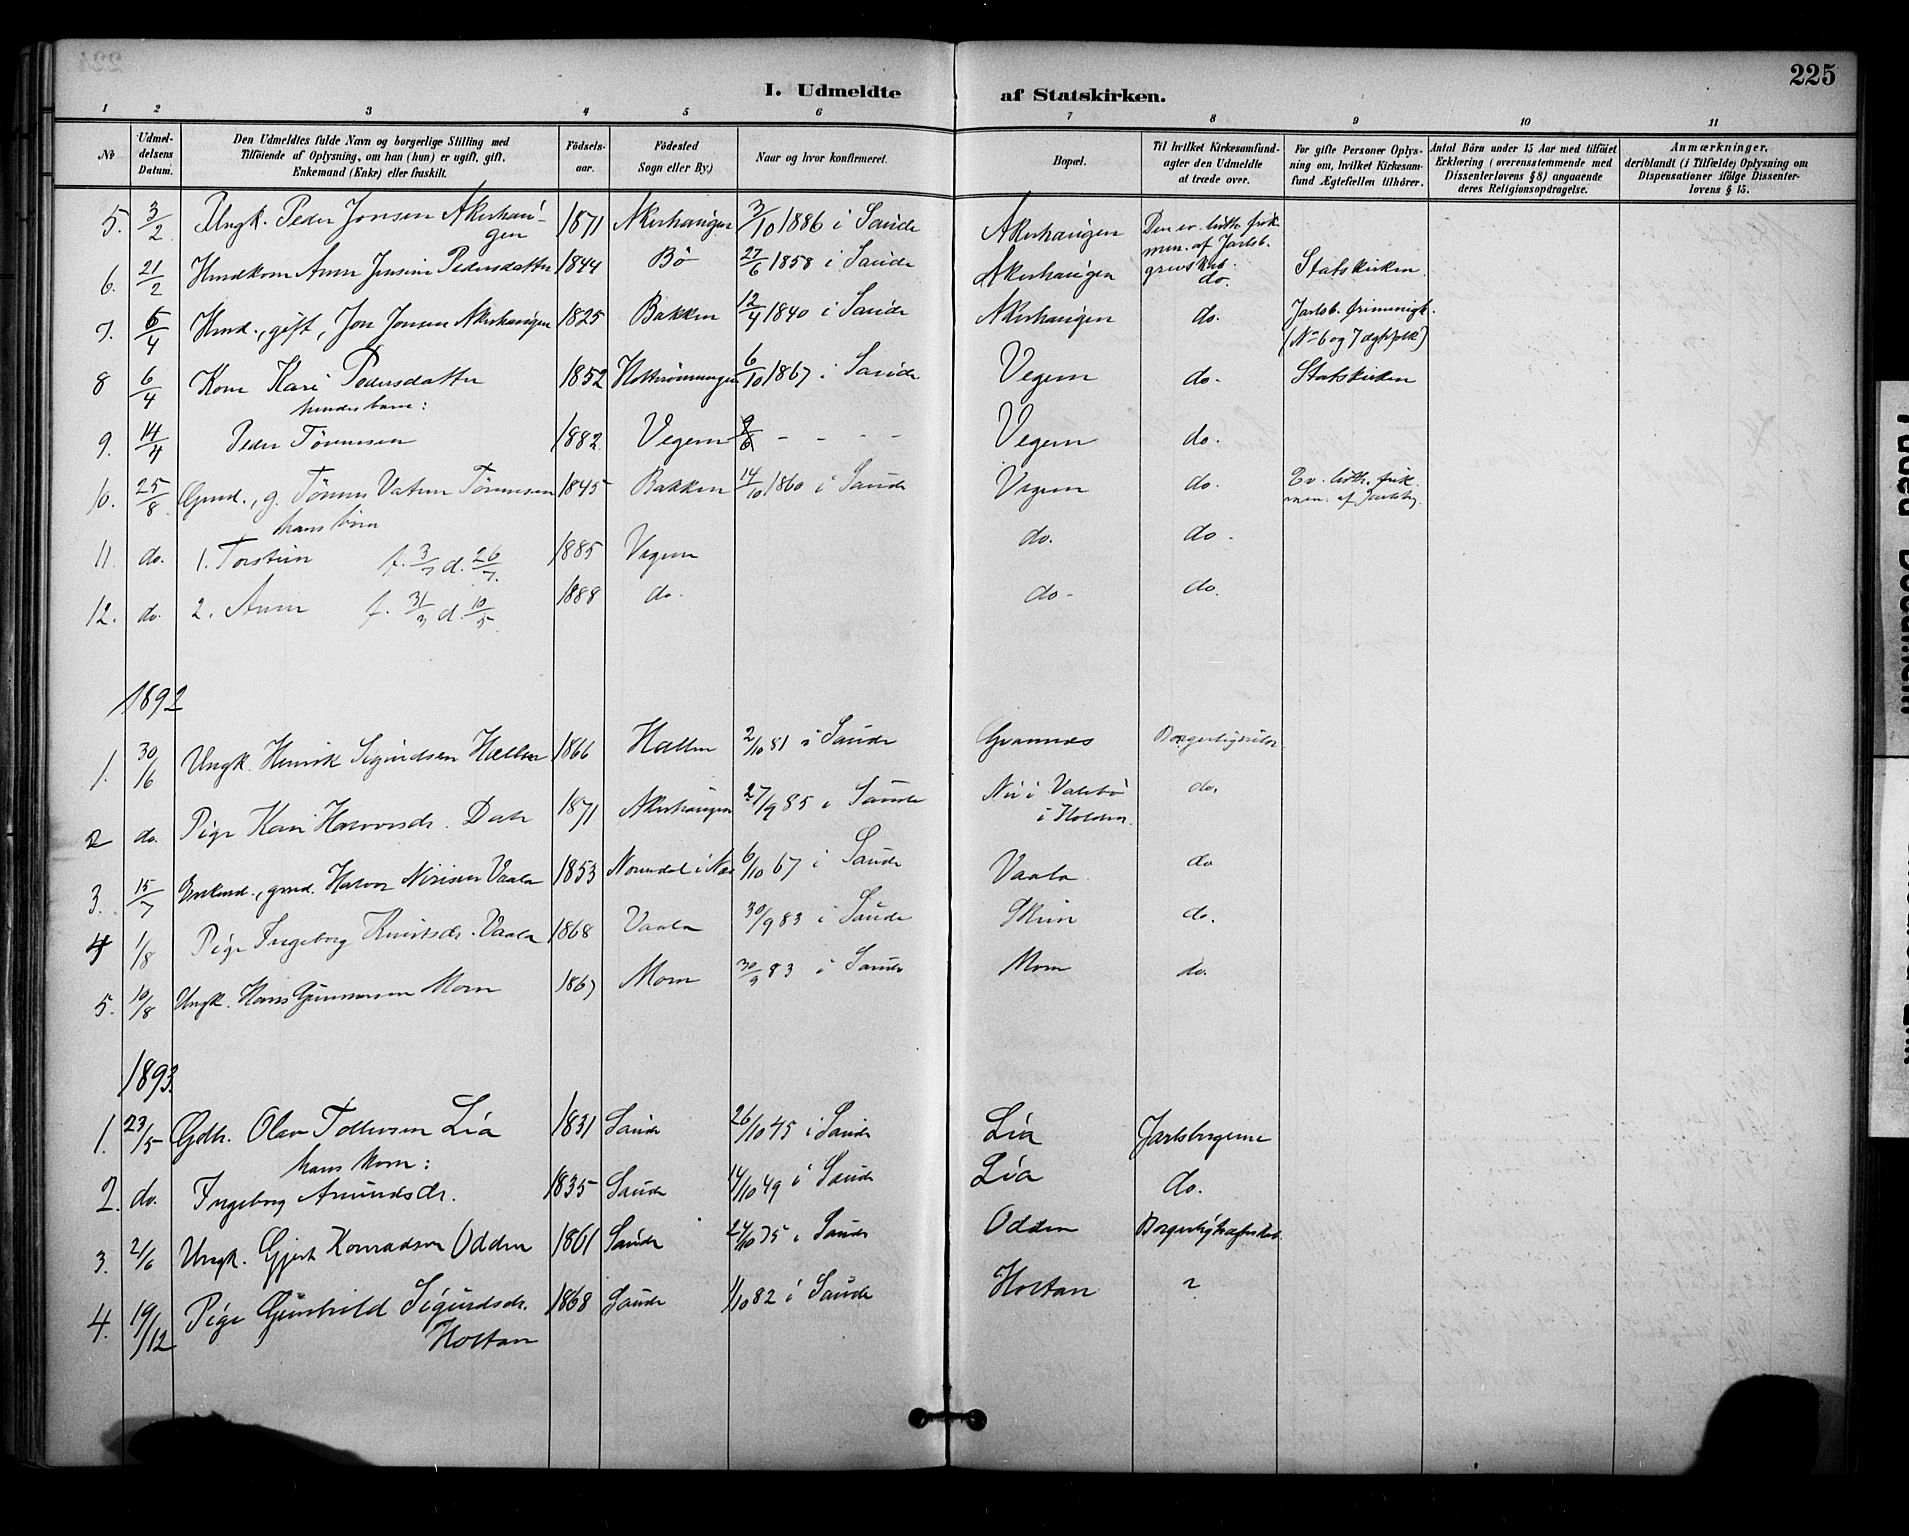 225
I. Udmeldte af Statskirken.
1 2 3 4 5 6 7 8 9 10 11
No
Udmeldelsens Datum.
Den Udmeldtes fulde Navn og borgerlige Stilling med Tilföiende af Oplysning, om han (hun) er ugift, gift, Enkemand (Enke) eller fraskilt.
Födselsaar.
Födested Sogn eller By.)
Naar og hvor konfirmeret.
Bopæl.
Til hvilket Kirkesamfund agter den Udmeldte at træde over.
For gifte Personer Oplysning om, hvilket Kirkesamfund Ægtefællen tilhörer.
Antal Börn under 15 Aar med tilföiet Erklæring (overensstemmende med Dissenterlovens § 8) angaaende deres Religionsopdragelse.
Anmærkninger, deriblandt (i Tilfælde) Oplysning om Dispensationer ifölge Dissenterlovens § 15.
5. 3/2 Ungk. Peder Jonsen Akerhaugen 1871 Akerhaugen 3/10 1886 i Saude Akerhaugen Den ev. luth. frimen. af Jarlsb. grevskab.
6. 21/2 Huusmdkone Anne Pedersdatter 1844 Bö 27/6 1858 i Saude Akerhaugen do. Statskirken
7. 6/4 Husmd., gift, Jon Jonsen Akerhaugen 1825 Bakken 12/4 1840 i Saude Akerhaugen do. Jarlsb. frimenigh. (No 6 og 7 ægtefolk)
8 6/4 Kone Kari Pedersdatter 1852 6/10 1867 i Saude Vegem do. Statskirken
hendes barn:
9. 14/4 Peder Tönnesen 1882 Vegem - - - - Vegem do.
10. 25/8 Gmd., g. Tönnes Tönnesen 1845 Bakken 14/10 1860 i Saude Vegem do. Ev. luth. frimen. af Jarlsberg
hans börn
11. do. 1. Torstein f. 3/7 d. 26/7. 1885 Vegem do. do.
12. do. 2. Anne f. 31/3 d. 10/5 1888 do. do. do.
1892
1. 30/6 Ungk. Henrik Sigurdsen Hællen 1866 Hællen 2/10 81 i Saude
2 do. Pige Kari Halvorsdr. Dale 1871 Akerhaugen 27/9 85 i Saude i Valebö i Holden. do.
3. 15/7 Enkemd., gmd. Halvor Vaala 1853 6/10 67 i Saude Vaala do
4 1/8 Pige Ingeborg Knutsdr. Vaala 1868 Vaala 30/9 83 i Saude Skien do.
5. 10/8 Ungk. Hans Gunnarsen Moen 1867 Moen 30/9 83 i Saude Moen do.
1893.
1. 23/5 Gdbr. Olav Tollevsen Lia 1831 Saude 26/10 45 i Saude Lia Jarlsbergerne
hans kone:
2. do. Ingeborg Amundsdr. 1835 Saude 14/10 49 i Saude Lia do.
3. 2/6 Ungk. Gjert Konradsen Odden 1861 Saude 24/10 75 i Saude Odden
4. 19/12 Pige Gunhild Sigurdsdr. Holtan 1868 Saude 1/10 82 i Saude Holtan ?